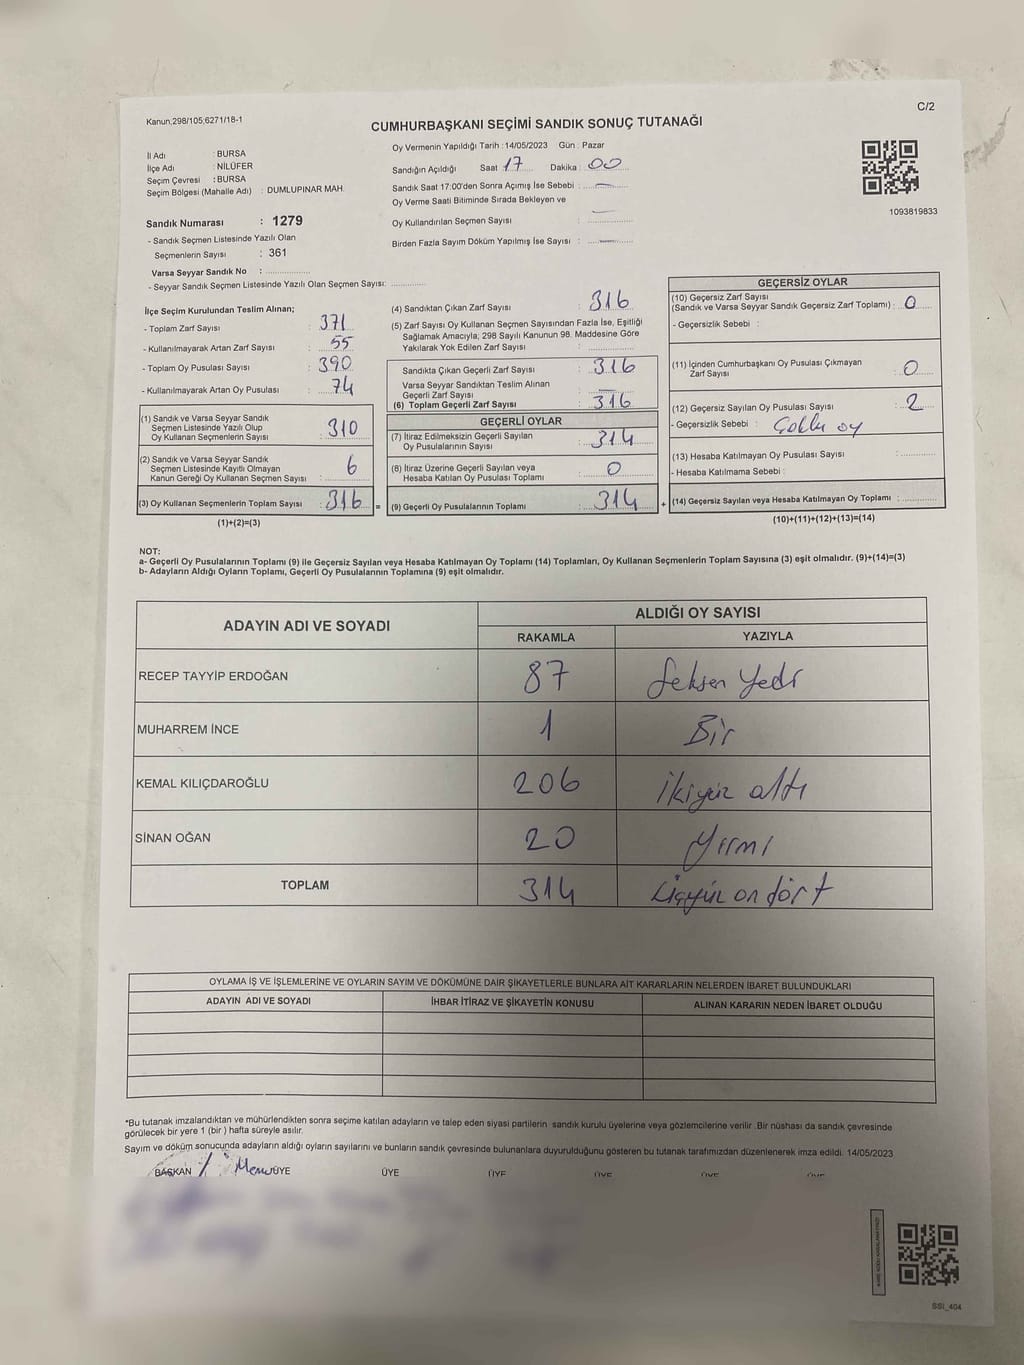 Kanun,298/105;6271/18-1
C/2
CUMHURBAŞKANI SEÇİMİ SANDIK SONUÇ TUTANAĞI
İl Adı : BURSA
İlçe Adı : NİLÜFER
Seçim Çevresi : BURSA
Seçim Bölgesi (Mahalle Adı) : DUMLUPINAR MAH.
Sandık Numarası : 1279
- Sandık Seçmen Listesinde Yazılı Olan
Seçmenlerin Sayısı : 361
Varsa Seyyar Sandık No : ..............
- Seyyar Sandık Seçmen Listesinde Yazılı Olan Seçmen Sayısı: ............
Oy Vermenin Yapıldığı Tarih : 14/05/2023 Gün : Pazar
Sandığın Açıldığı Saat 17 Dakika : 00
Sandık Saat 17:00'den Sonra Açımış İse Sebebi : —
Oy Verme Saati Bitiminde Sırada Bekleyen ve
Oy Kullandırılan Seçmen Sayısı : —
Birden Fazla Sayım Döküm Yapılmış İse Sayısı : —
1093819833
İlçe Seçim Kurulundan Teslim Alınan;
- Toplam Zarf Sayısı : 371
- Kullanılmayarak Artan Zarf Sayısı : 55
- Toplam Oy Pusulası Sayısı : 390
- Kullanılmayarak Artan Oy Pusulası : 74
(1) Sandık ve Varsa Seyyar Sandık
Seçmen Listesinde Yazılı Olup
Oy Kullanan Seçmenlerin Sayısı : 310
(2) Sandık ve Varsa Seyyar Sandık
Seçmen Listesinde Kayıtlı Olmayan
Kanun Gereği Oy Kullanan Seçmen Sayısı : 6
(3) Oy Kullanan Seçmenlerin Toplam Sayısı : 316 =
(1)+(2)=(3)
(4) Sandıktan Çıkan Zarf Sayısı : 316
(5) Zarf Sayısı Oy Kullanan Seçmen Sayısından Fazla İse, Eşitliği
Sağlamak Amacıyla; 298 Sayılı Kanunun 98. Maddesine Göre
Yakılarak Yok Edilen Zarf Sayısı : ..............
Sandıkta Çıkan Geçerli Zarf Sayısı : 316
Varsa Seyyar Sandıktan Teslim Alınan
Geçerli Zarf Sayısı : —
(6) Toplam Geçerli Zarf Sayısı : 316
GEÇERLİ OYLAR
(7) İtiraz Edilmeksizin Geçerli Sayılan
Oy Pusulalarının Sayısı : 314
(8) İtiraz Üzerine Geçerli Sayılan veya
Hesaba Katılan Oy Pusulası Toplamı : 0
(9) Geçerli Oy Pusulalarının Toplamı : 314 +
GEÇERSİZ OYLAR
(10) Geçersiz Zarf Sayısı
(Sandık ve Varsa Seyyar Sandık Geçersiz Zarf Toplamı) : 0
- Geçersizlik Sebebi :
(11) İçinden Cumhurbaşkanı Oy Pusulası Çıkmayan
Zarf Sayısı : 0
(12) Geçersiz Sayılan Oy Pusulası Sayısı : 2
- Geçersizlik Sebebi : Çoklu oy
(13) Hesaba Katılmayan Oy Pusulası Sayısı : ............
- Hesaba Katılmama Sebebi :
(14) Geçersiz Sayılan veya Hesaba Katılmayan Oy Toplamı : ............
(10)+(11)+(12)+(13)=(14)
NOT:
a- Geçerli Oy Pusulalarının Toplamı (9) ile Geçersiz Sayılan veya Hesaba Katılmayan Oy Toplamı (14) Toplamları, Oy Kullanan Seçmenlerin Toplam Sayısına (3) eşit olmalıdır. (9)+(14)=(3)
b- Adayların Aldığı Oyların Toplamı, Geçerli Oy Pusulalarının Toplamına (9) eşit olmalıdır.
ADAYIN ADI VE SOYADI
ALDIĞI OY SAYISI
RAKAMLA YAZIYLA
RECEP TAYYİP ERDOĞAN 87 Seksen Yedi
MUHARREM İNCE 1 Bir
KEMAL KILIÇDAROĞLU 206 İkiyüz altı
SİNAN OĞAN 20 Yirmi
TOPLAM 314 Üçyüz on dört
OYLAMA İŞ VE İŞLEMLERİNE VE OYLARIN SAYIM VE DÖKÜMÜNE DAİR ŞİKAYETLERLE BUNLARA AİT KARARLARIN NELERDEN İBARET BULUNDUKLARI
ADAYIN ADI VE SOYADI İHBAR İTİRAZ VE ŞİKAYETİN KONUSU ALINAN KARARIN NEDEN İBARET OLDUĞU
*Bu tutanak imzalandıktan ve mühürlendikten sonra seçime katılan adayların ve talep eden siyasi partilerin sandık kurulu üyelerine veya gözlemcilerine verilir .Bir nüshası da sandık çevresinde
görülecek bir yere 1 (bir ) hafta süreyle asılır.
Sayım ve döküm sonucunda adayların aldığı oyların sayılarını ve bunların sandık çevresinde bulunanlara duyurulduğunu gösteren bu tutanak tarafımızdan düzenlenerek imza edildi. 14/05/2023
BAŞKAN ÜYE ÜYE ÜYE ÜYE ÜYE ÜYE
SSI_404